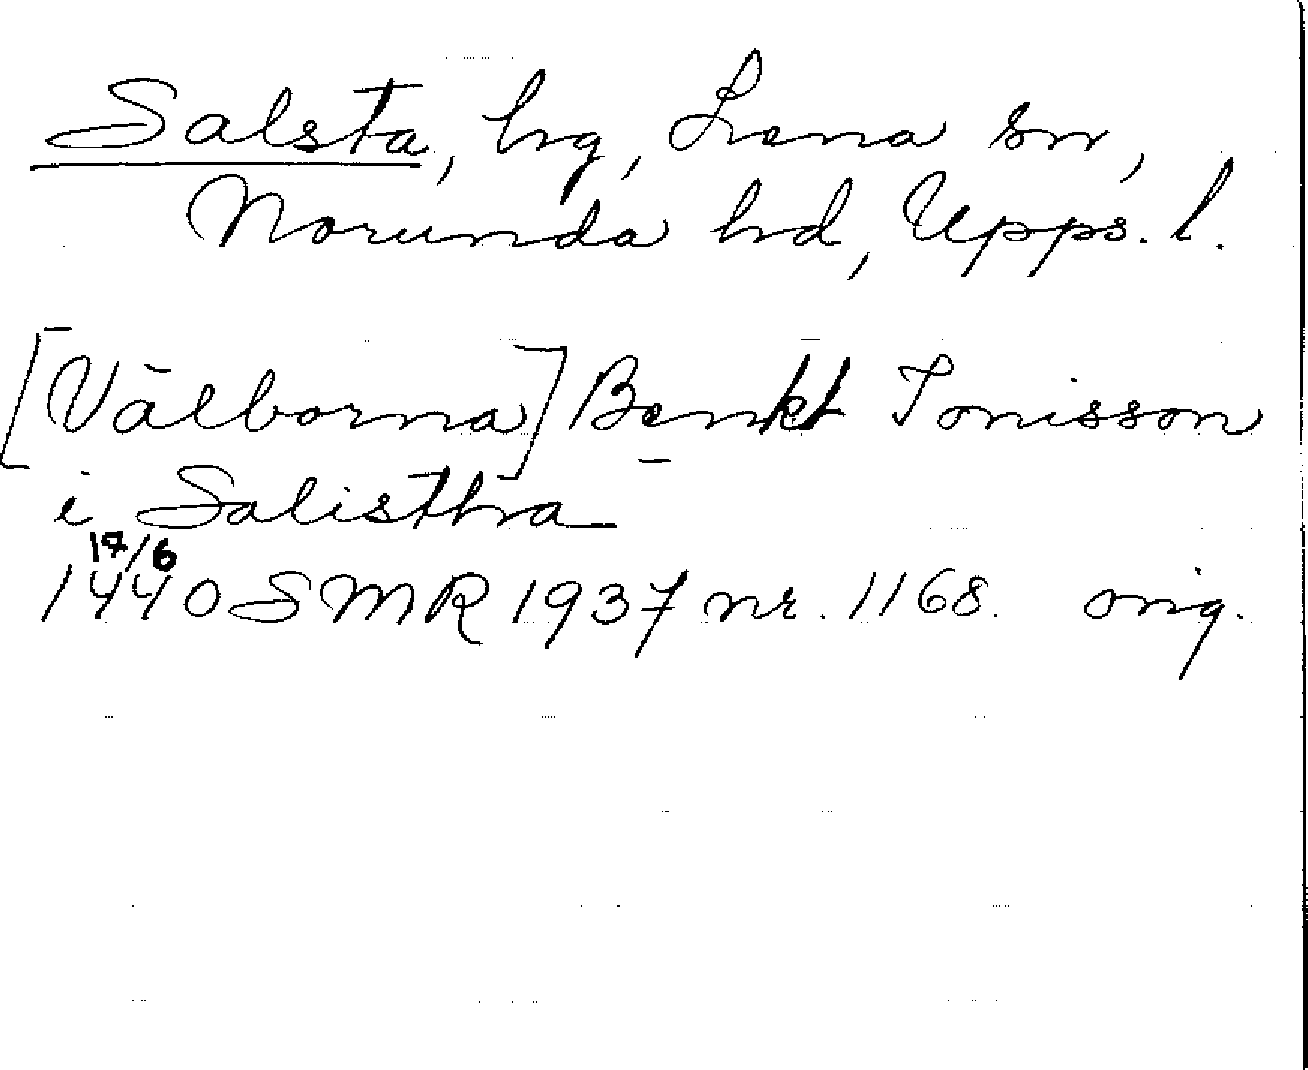 Salsta, hg, Lena sn,
Norunda hd, Upps. l.
[Välborna] Benkt Tonisson
i Salistha
17/6
1440 SMR 1937 nr. 1168. orig.